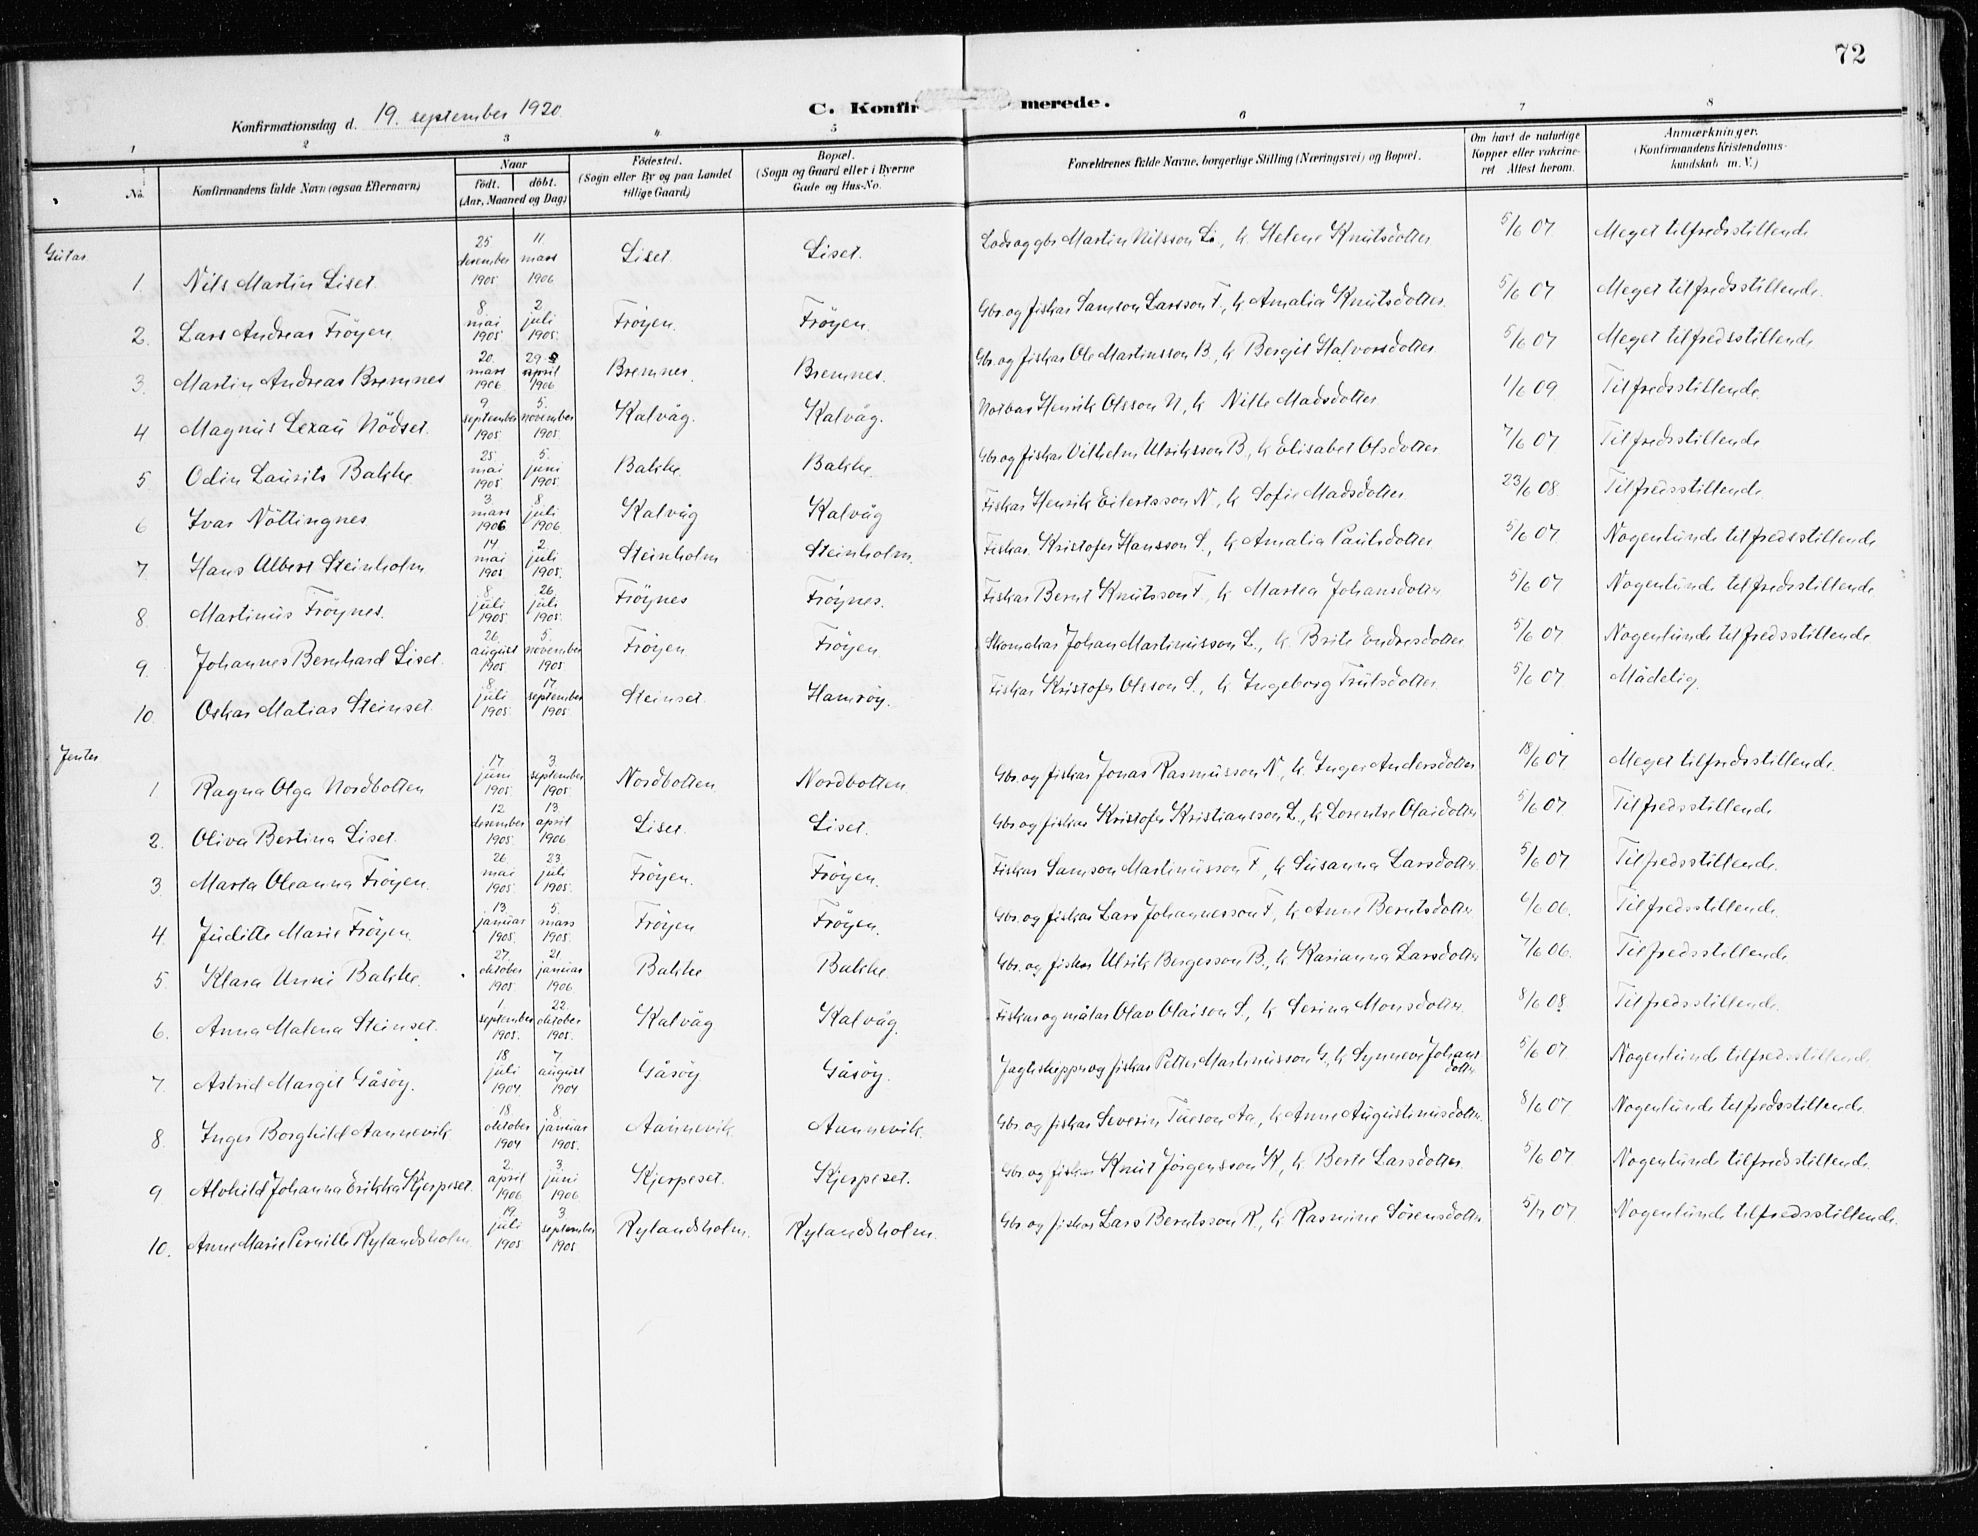 72
Konfirmationsdag d. 19. september 1920.
C. Konfirmerede.
1 2 3 4 5 6 7 8
No.
Konfirmandens fulde Navn (ogsaa Efternavn)
Naar
født. døbt.
(Aar, Maaned og Dag)
Fødested.
(Sogn eller By og paa Landet
tillige Gaard)
Bopæl.
(Sogn og Gaard eller i Byerne
Gade og Hus-No.
Forældrenes fulde Navne, borgerlige Stilling (Næringsvei) og Bopæl.
Om havt de naturlige
Kopper eller vakcine-
ret Attest herom.
Anmærkninger.
(Konfirmandens Kristendoms-
kundskab m. V.)
Gutar
1. Nils Martin Liset. 25 desember 1905 11. mars 1906 Liset. Liset. Lods og gbr Martin Nilsson Li, k. Helene Knutsdotter 5/6 07 Meget tilfredsstillende
2. Lars Andreas Fröyen 8. mai 1905 2. juli 1905. Fröyen. Fröyen. Gbr. og fiskar Samson Larsson F, k Amalia Knutsdotter. 5/6 07 Meget tilfredsstillende.
3. Martin Andreas Bremnes 20. mars 1906. 29 april 1906 Bremnes. Bremnes. Gbr og fiskar Ole Martinsson B, k Bergit Halvorsdotter 5/6 07 Meget tilfredsstillende
4 Magnus Lexau Nödset. 9. september 1905 5. november 1905. Kalvåg. Kalvåg. Notbas Henrik Olsson N, k Nille Madsdotter 1/6 09. Tilfredsstillende.
5 Odin Laurits Bakke 25 mai 1905 5. juni 1905. Bakke. Bakke. Gbr og fiskar Vilhelm Ulriksson B, k Elisabet Olsdotter 7/6 07 Tilfredsstillende
6 Ivar Nöttingnes 3 mars 1906 8. juli 1906. Kalvåg Kalvåg Fiskar Henrik Eilertsson N, k Sofie Madsdotter 23/6 08. Tilfredsstillende.
7. Hans Albert Steinholm 14. mai 1905. 2. juli 1905. Steinholm Steinholm. Fiskar. Kristofer Hansson S., k Amalia Paulsdotter 5/6 07. Nogenlunde tilfredsstillende
8. Martinus Fröynes. 8. juli 1905. 26. juli 1905. Fröynes Fröynes. Fiskar Bernt Knutsson F, k Martea Johansdotter 5/6 07 Nogenlunde tilfredsstillende.
9. Johannes Bernhard Liset. 26. august 1905. 5. november 1905 Fröyen Fröyen. Skomakar Johan Martinusson L., k. Brite Endresdotter 5/6 07 Nogenlunde tilfredsstillende.
10. Oskar Matias Steinset. 8. juli 1905. 17. september 1905. Steinset. Hamröy. Fiskar Kristofer Olsson S., k Ingeborg Trulsdotter 5/6 07 Mådelig.
Jenter
1 Ragna Olga Nordbotten 17. juni 1905 3. september 1905. Nordbotten. Nordbotten. Gbr. og fiskar Jonas Rasmusson N, k. Inger Andersdotter 18/6 07 Meget tilfredsstillende.
2. Oliva Bertina Liset. 12 desember 1905. 13. april 1906 Liset. Liset. Gbr og fiskar Kristofer Kristiansson L., k Lorentse Olaidotter 5/6 07 Tilfredsstillende
3 Marta Oleanna Fröyen. 26. mai 1905. 23. juli 1905. Fröyen. Fröyen. Fiskar Samson Martinusson F, k Susanna Larsdotter. 5/6 07 Tilfredsstillende.
4. Juditte Marie Fröyen. 13. januar 1905. 5. mars 1905. Fröyen Fröyen. Gbr. og fiskar Lars Johannesson F, k Anne Berntsdotter 6/6 06. Tilfredsstillende.
5. Klara Unni Bakke. 27. oktober 1905. 21. januar 1906. Bakke Bakke. Gbr. og fiskar Ulrik Bergesson B., k Karianna Larsdotter 7/6 06. Tilfredsstillende.
6. Anna Malena Steinset. 1. september 1905. 22. oktober 1905. Kalvåg Kalvåg. Fiskar og målar Olav Olaison S., k Serina Monsdotter. 8/6 08. Tilfredsstillende.
7. Astrid Margit Gåsöy. 18. juli 1904. 7. august 1904 Gåsöy. Gåsöy. Jagtskipper og fiskar Petter Martinusson G., k Synneve Johans- dotter 5/6 07. Nogenlunde tilfredsstillende.
8. Inger Borghild Aannevik. 18. oktober 1904 8. januar 1905. Aannevik. Aannevik. Gbr. og fiskar Severin Tueson Aa, k Anne Augustinusdotter. 8/6 07. Nogenlunde tilfredsstillende.
9 Alvhild Johanna Erikka Kjerpeset. 2. april 1906 3. juni 1906. Kjerpeset. Kjerpeset. Gbr. og fiskar Knut Jörgensson K, k. Berte Larsdotter. 5/6 07. Nogenlunde tilfredsstillende.
10. Anne Marie Pernille Rylandsholm 19. juli 1905 3 september 1905 Rylandsholm. Rylandsholm. Gbr og fiskar Lars Berntsson R, k Rasmine Sörensdotter 5/7 07 Nogenlunde tilfredsstillende.